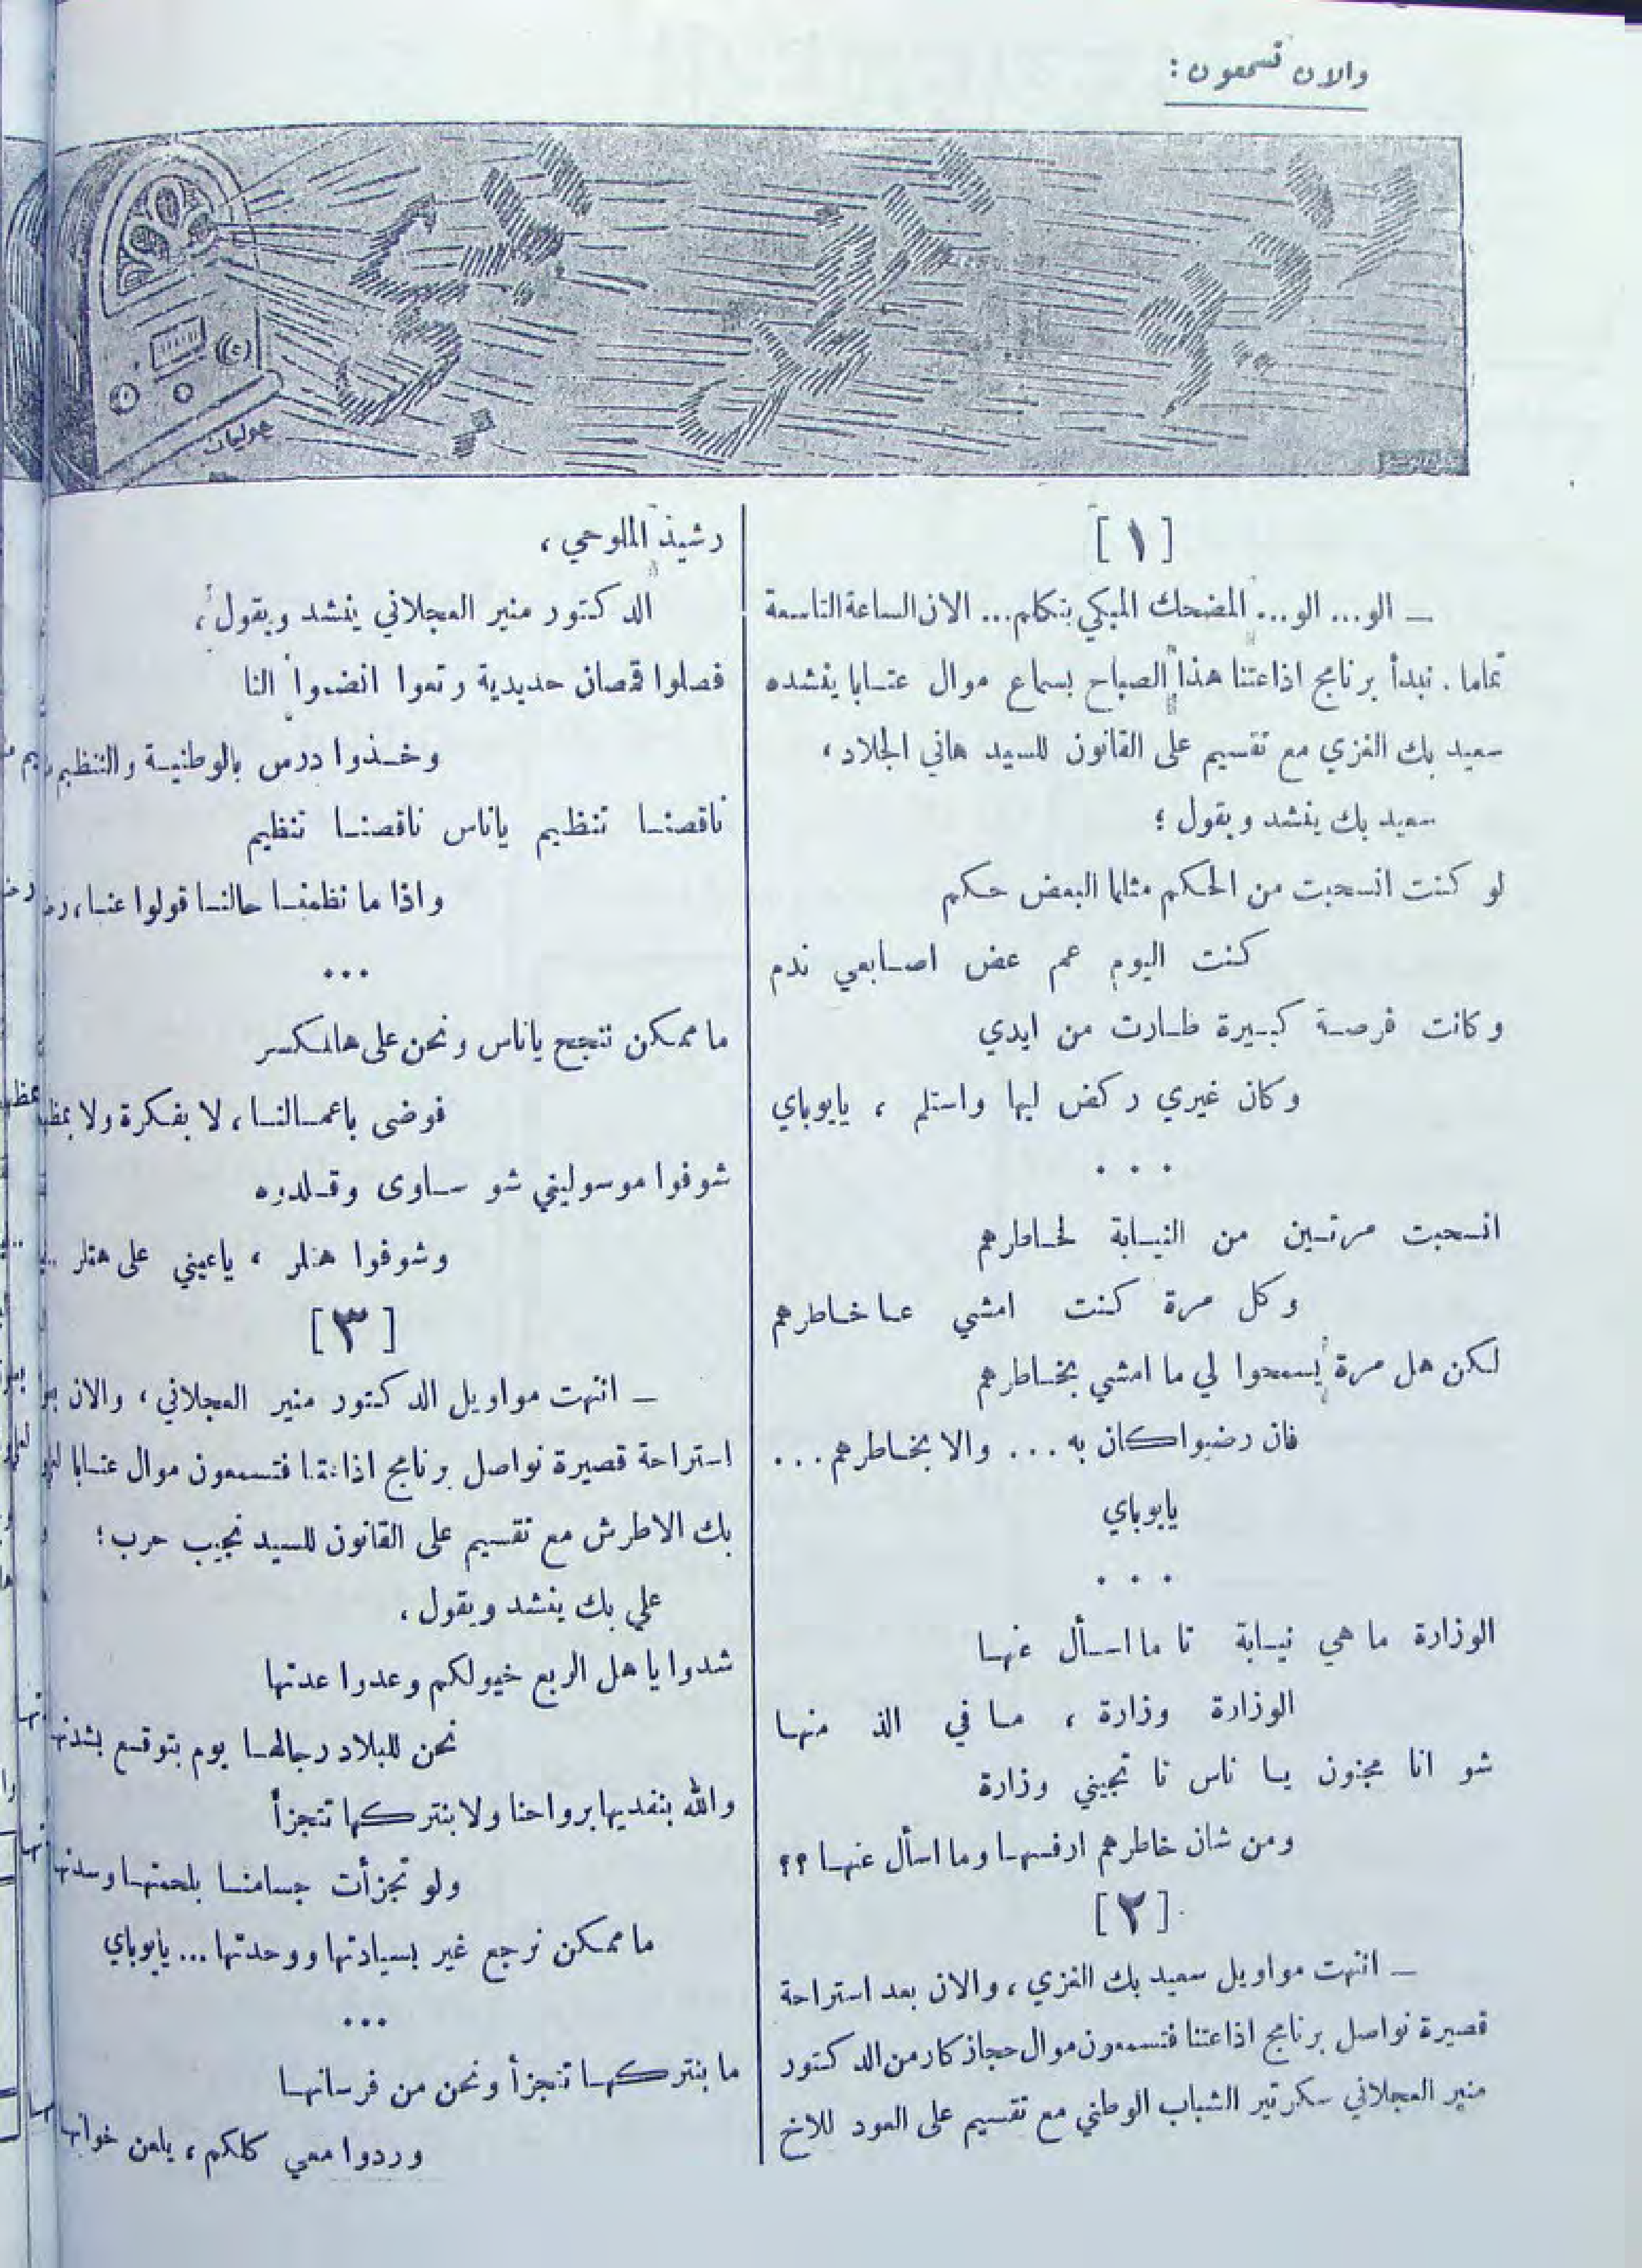 والان تسمعون :
راديو المضحك المبكي
جوليان
[ ١ ]
ـ الو ... الو ... المضحك المبكي يتكلم ... الان الساعة التاسعة
تماما . نبدأ برنامج اذاعتنا هذا الصباح بسماع موال عتابا ينشده
سعيد بك الغزي مع تقسيم على القانون للسيد هاني الجلاد ،
سعيد بك ينشد ويقول ؛
لو كنت انسحبت من الحكم مثلما البعض حكم
كنت اليوم عم عض اصابعي ندم
وكانت فرصة كبيرة طارت من ايدي
وكان غيري ركض ليها واستلم ، يابوباي
. . .
انسحبت مرتين من النيابة لخاطرهم
وكل مرة كنت امشي عا خاطرهم
لكن هل مرة يسمحوا لي ما امشي بخاطرهم
فان رضيوا كان به ... والا بخاطرهم ...
يابوباي
. . .
الوزارة ما هي نيابة تا ما اسأل عنها
الوزارة وزارة ، ما في الذ منها
شو انا مجنون يا ناس تا تجيني وزارة
ومن شان خاطرهم ارفسها وما اسأل عنها ؟؟
[ ٢ ]
ـ انتهت مواويل سعيد بك الغزي ، والان بعد استراحة
قصيرة نواصل برنامج اذاعتنا فتسمعون موال حجاز كار من الدكتور
منير العجلاني سكرتير الشباب الوطني مع تقسيم على العود للاخ
رشيد الملوحي ،
الدكتور منير العجلاني ينشد ويقول ،
فصلوا قمصان حديدية وتعوا انضموا النا
وخذوا درس بالوطنية والتنظيم
ناقصنا تنظيم ياناس ناقصنا تنظيم
واذا ما نظمنا حالنا قولوا عنا ،
...
ما ممكن ننجح ياناس ونحن على هالمكسر
فوضى باعمالنا ، لا بفكرة ولا
شوفوا موسوليني شو ساوى وقلدوه
وشوفوا هتلر ، ياعيني على هتلر ..
[ ٣ ]
ـ انتهت مواويل الدكتور منير العجلاني ، والان
استراحة قصيرة نواصل برنامج اذاعتنا فتسمعون موال عتابا
بك الاطرش مع تقسيم على القانون للسيد نجيب حرب ؛
علي بك ينشد ويقول ،
شدوا يا هل الربع خيولكم وعدوا عدتها
نحن للبلاد رجالها يوم بتوقع بشدتها
والله بنفديها برواحنا ولا بنتركها تتجزأ
ولو تجزأت جسامنا بلحمتها وسدتها
ما ممكن نرجع غير بسيادتها ووحدتها ... يابوباي
...
ما بنتركها تتجزأ ونحن من فرسانها
وردوا معي كلكم ، يلعن خوانها